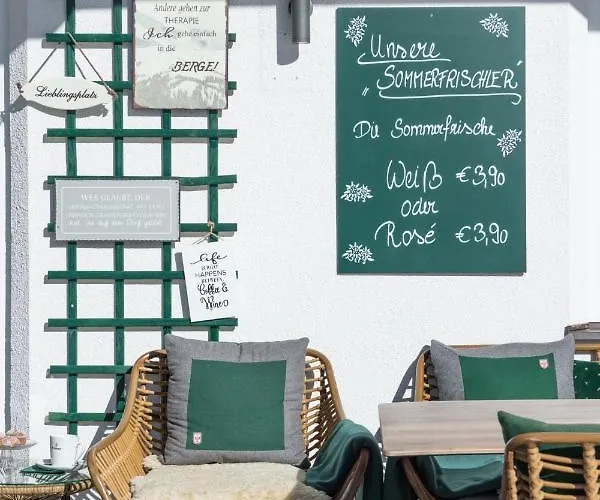 Andere gehen zur
THERAPIE
Ich gehe einfach
in die
BERGE!
Lieblingsplatz
WER GLAUBT, DER
life
HAPPENS
BETWEEN
Coffee &
Wine
Unsere
"SOMMERFRISCHLER"
Die Sommerfrische
Weiß €3,90
oder
Rosé €3,90